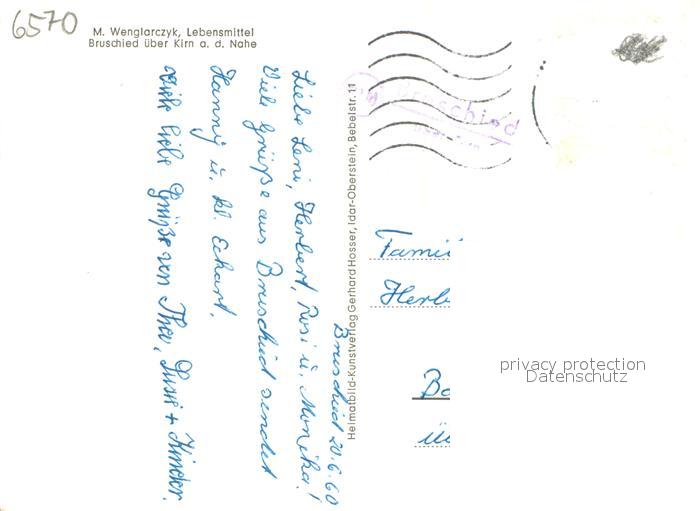 6570
M. Wenglarczyk, Lebensmittel
Bruschied über Kirn a. d. Nahe
Bruschied 20.6.60
Liebe Leni, Herbert, Rosi u. Monika!
Viele Grüße aus Bruschied sendet
Hanny u. kl. Eckart.
Viele liebe Grüße von Theo, Susi + Kinder.
Heimatbild-Kunstverlag Gerhard Hosser, Idar-Oberstein, Bebelstr. 11
Bruschied
Fami
Herb
privacy protection
Datenschutz